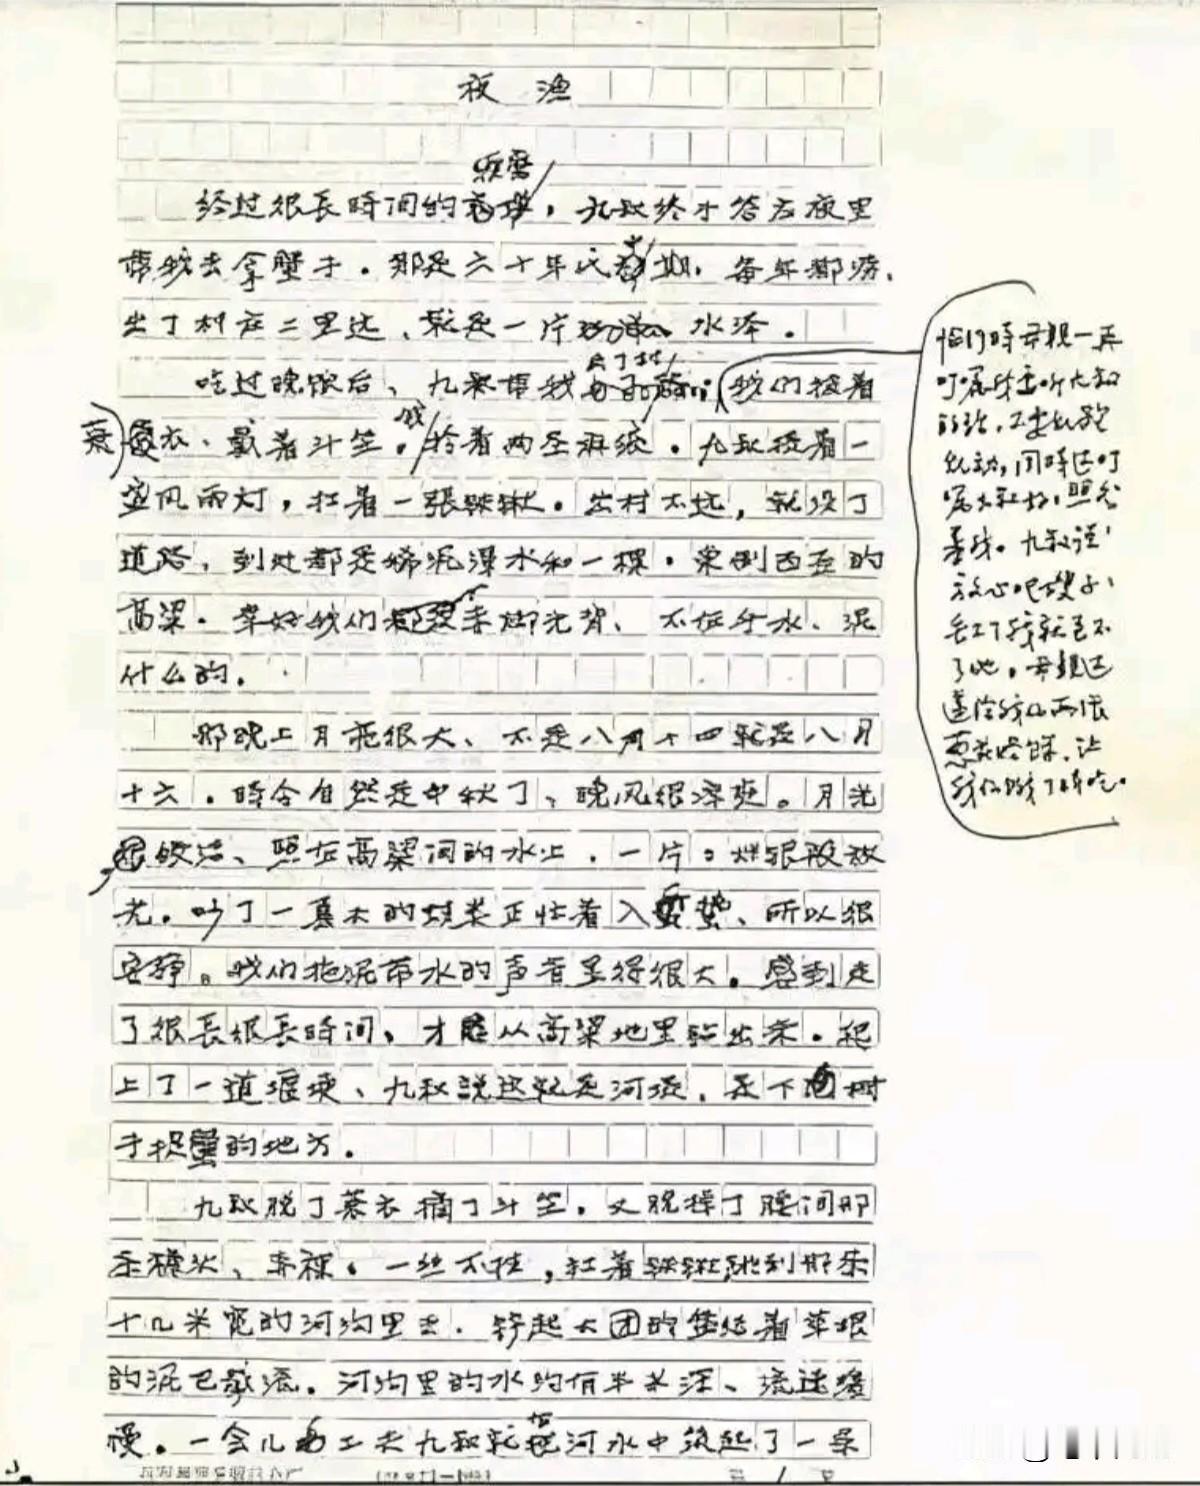 夜渔
软磨
经过很長時间的，九叔终于答应夜里
帶我去拿蟹子。那是六十年代中期，每年都涝，
出了村庄二里远、就是一片水泽。
吃过晚饭后、九叔带我出了村，我们披着
蓑衣、戴着斗笠。我拎着两条麻袋。九叔提着一
盏风雨灯，扛着一張铁锹。出村不远，就没了
道路，到处都是烯泥渾水和一棵。東倒西歪的
高粱。幸好我们赤脚光背、不在乎水、泥
什么的。
那晚上月亮很大、不是八月十四就是八月
十六。時令自然是中秋了、晚风很凉爽。月光
皎洁、照在高粱间的水上，一片。烂银般放
光。吵了一夏天的蛙类正忙着入蛰、所以很
安静。我们拖泥带水的声音显得很大。感到走
了很長很長時间，才从高粱地里钻出来。爬
上了一道堰埂、九叔説这就是河堤，是下栅
子捉蟹的地方。
九叔脱了蓑衣摘了斗笠，又脱掉了腰间那
条裤头、赤裸。一丝不挂，扛着铁锹跳到那条
十几米宽的河沟里去，铲起大团的盘结着草根
的泥巴截流。河沟里的水约有半米深、流速缓
慢。一会儿工夫九叔就在河水中筑起了一条
恰行時母親一再
叮嘱我要听九叔
的话，不要乱跑
乱动，同時还叮
嘱九叔好好照看
着我。九叔说，
放心吧嫂子，
丢了我就丢不
了他。母親还
递给我们两张
葱花烙饼，让
我们饿了時吃。
第 1 页